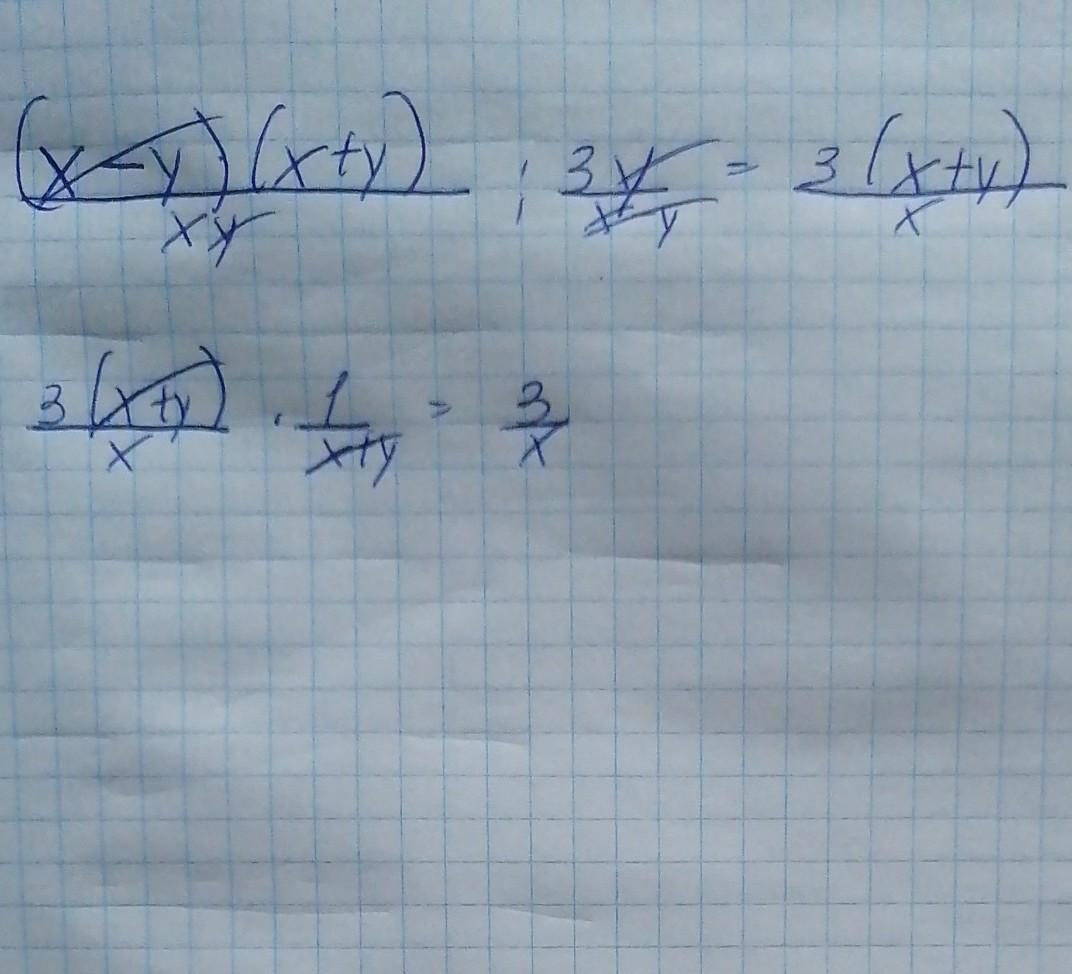 (x-y)(x+y)/xy : 3y/x-y = 3(x+y)/x
3(x+y)/x · 1/x+y = 3/x